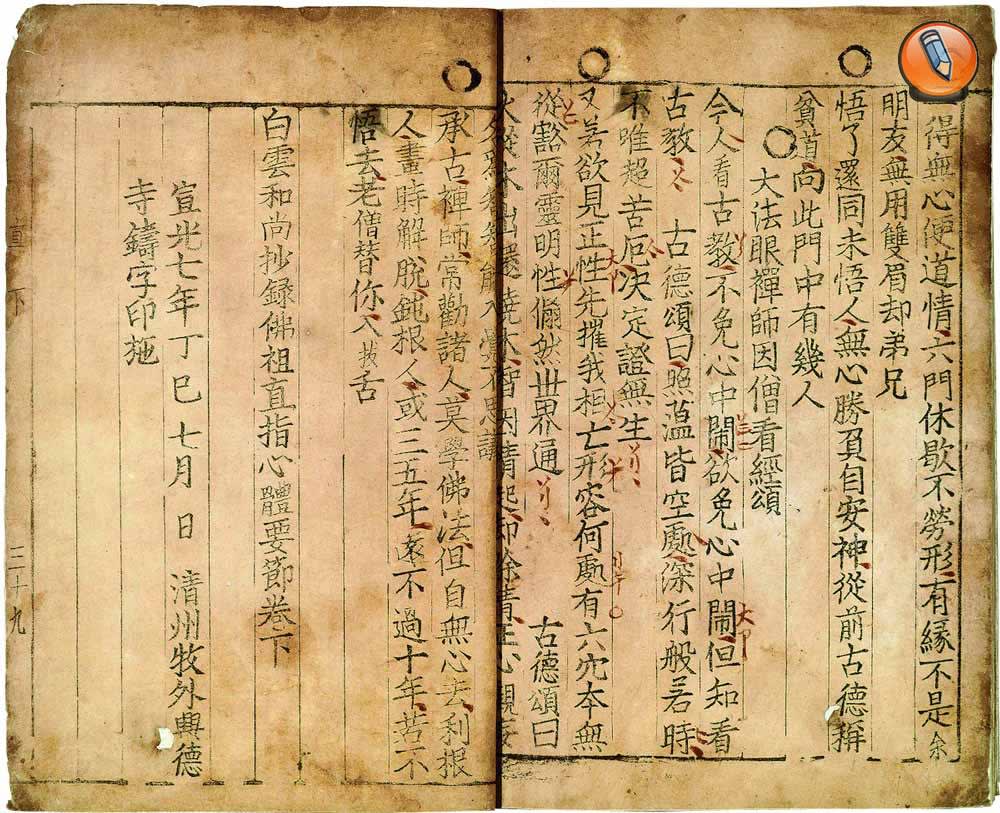 得無心便道情六門休歇不勞形有緣不是余
明友無用雙眉却弟兄
悟了還同未悟人無心勝負自安神從前古德稱
貧道向此門中有幾人
大法眼禪師因僧看經頌
今人看古教不免心中鬧欲免心中鬧但知看
古教 古德頌曰照蕰皆空䖏深行般若時
不唯超苦厄决定證無生
又若欲見正性先摧我相亡形容何䖏有六穴本無
從豁爾靈明性翛然世界通 古德頌曰
火從木出還燒木智因情起却除情
承古禪師常勸諸人莫學佛法但自無心去利根
人畫時解脫鈍根人或三五年遠不過十年若不
悟去老僧替你入拔舌
白雲和尚抄錄佛祖直指心體要節卷下
宣光七年丁巳七月 日 清州牧外興德
寺鑄字印施
直 下
三十九